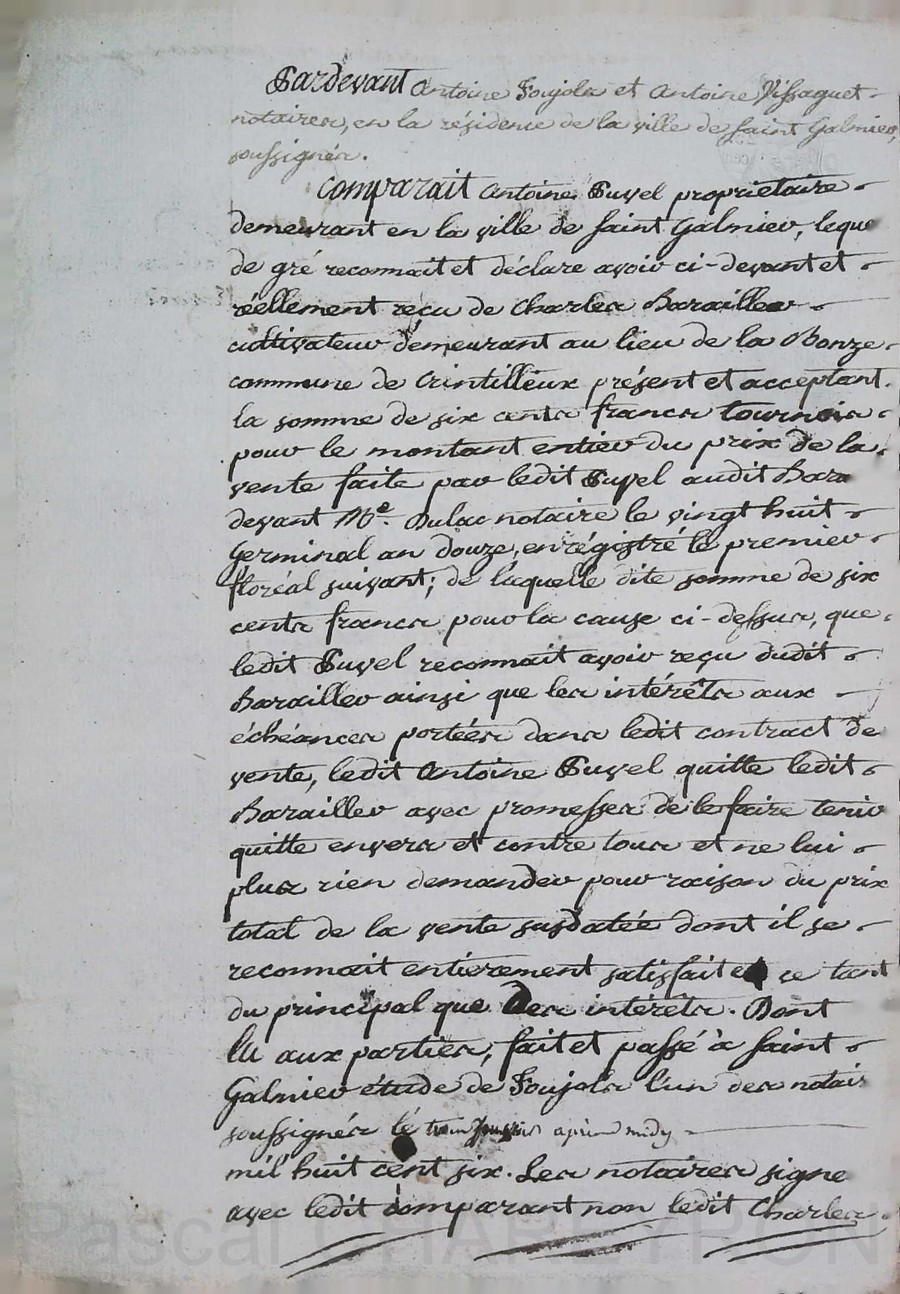 Pardevant Antoine Soujols et Antoine Vissaguet
notaires, en la résidence de la ville de Saint Galmier,
soussignés.
Comparait Antoine Puvel propriétaire
demeurant en la ville de Saint Galmier, leque
de gré reconnait et déclare avoir ci-devant et
réellement reçu de Charles Barailler
cultivateur demeurant au lieu de la Bonze
commune de Crintillieux présent et acceptant.
la somme de six cents francs tournois
pour le montant entier du prix de la
vente faite par ledit Puvel audit Bara
devant Me. Dulac notaire le vingt huit
Germinal an douze, enrégistré le premier
floréal suivant; de laquelle dite somme de six
cents francs pour la cause ci-dessus, que
ledit Puvel reconnait avoir reçu dudit
Barailler ainsi que les intérêts aux
échéances portées dans ledit contract de
vente, ledit Antoine Puvel quitte ledit
Barailler avec promesses de le faire tenir
quitte envers et contre tous et ne lui
plus rien demander pour raison du prix
total de la vente susdatée dont il se
reconnait entierement satisfait et ce tant
du principal que des intérêts. Dont
lu aux parties, fait et passé à Saint
Galmier étude de Soujols l'un des notair
soussignés le après midy
mil huit cent six. Les notaires signe
avec ledit comparant non ledit Charles
Pascal CHAREYRON